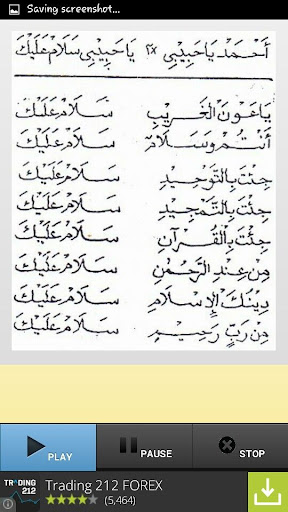 Saving screenshot...
أَحْمَدْ يَا حَبِيْبِي ٢x يَا حَبِيْبِي سَلَامْ عَلَيْكَ
يَا عَوْنَ الْغَرِيْبِ سَلَامْ عَلَيْكَ
أَنْتُمْ وَسَلَامْ سَلَامْ عَلَيْكَ
جِئْتَ بِالتَّوْحِيْدِ سَلَامْ عَلَيْكَ
جِئْتَ بِالتَّمْجِيْدِ سَلَامْ عَلَيْكَ
جِئْتَ بِالْقُرْآنِ سَلَامْ عَلَيْكَ
مِنْ عِنْدِ الرَّحْمٰنِ سَلَامْ عَلَيْكَ
دِيْنُكَ الْإِسْلَامِ سَلَامْ عَلَيْكَ
مِنْ رَبٍّ رَحِيْمٍ سَلَامْ عَلَيْكَ
PLAY PAUSE STOP
TRADING 212
Trading 212 FOREX
(5,464)